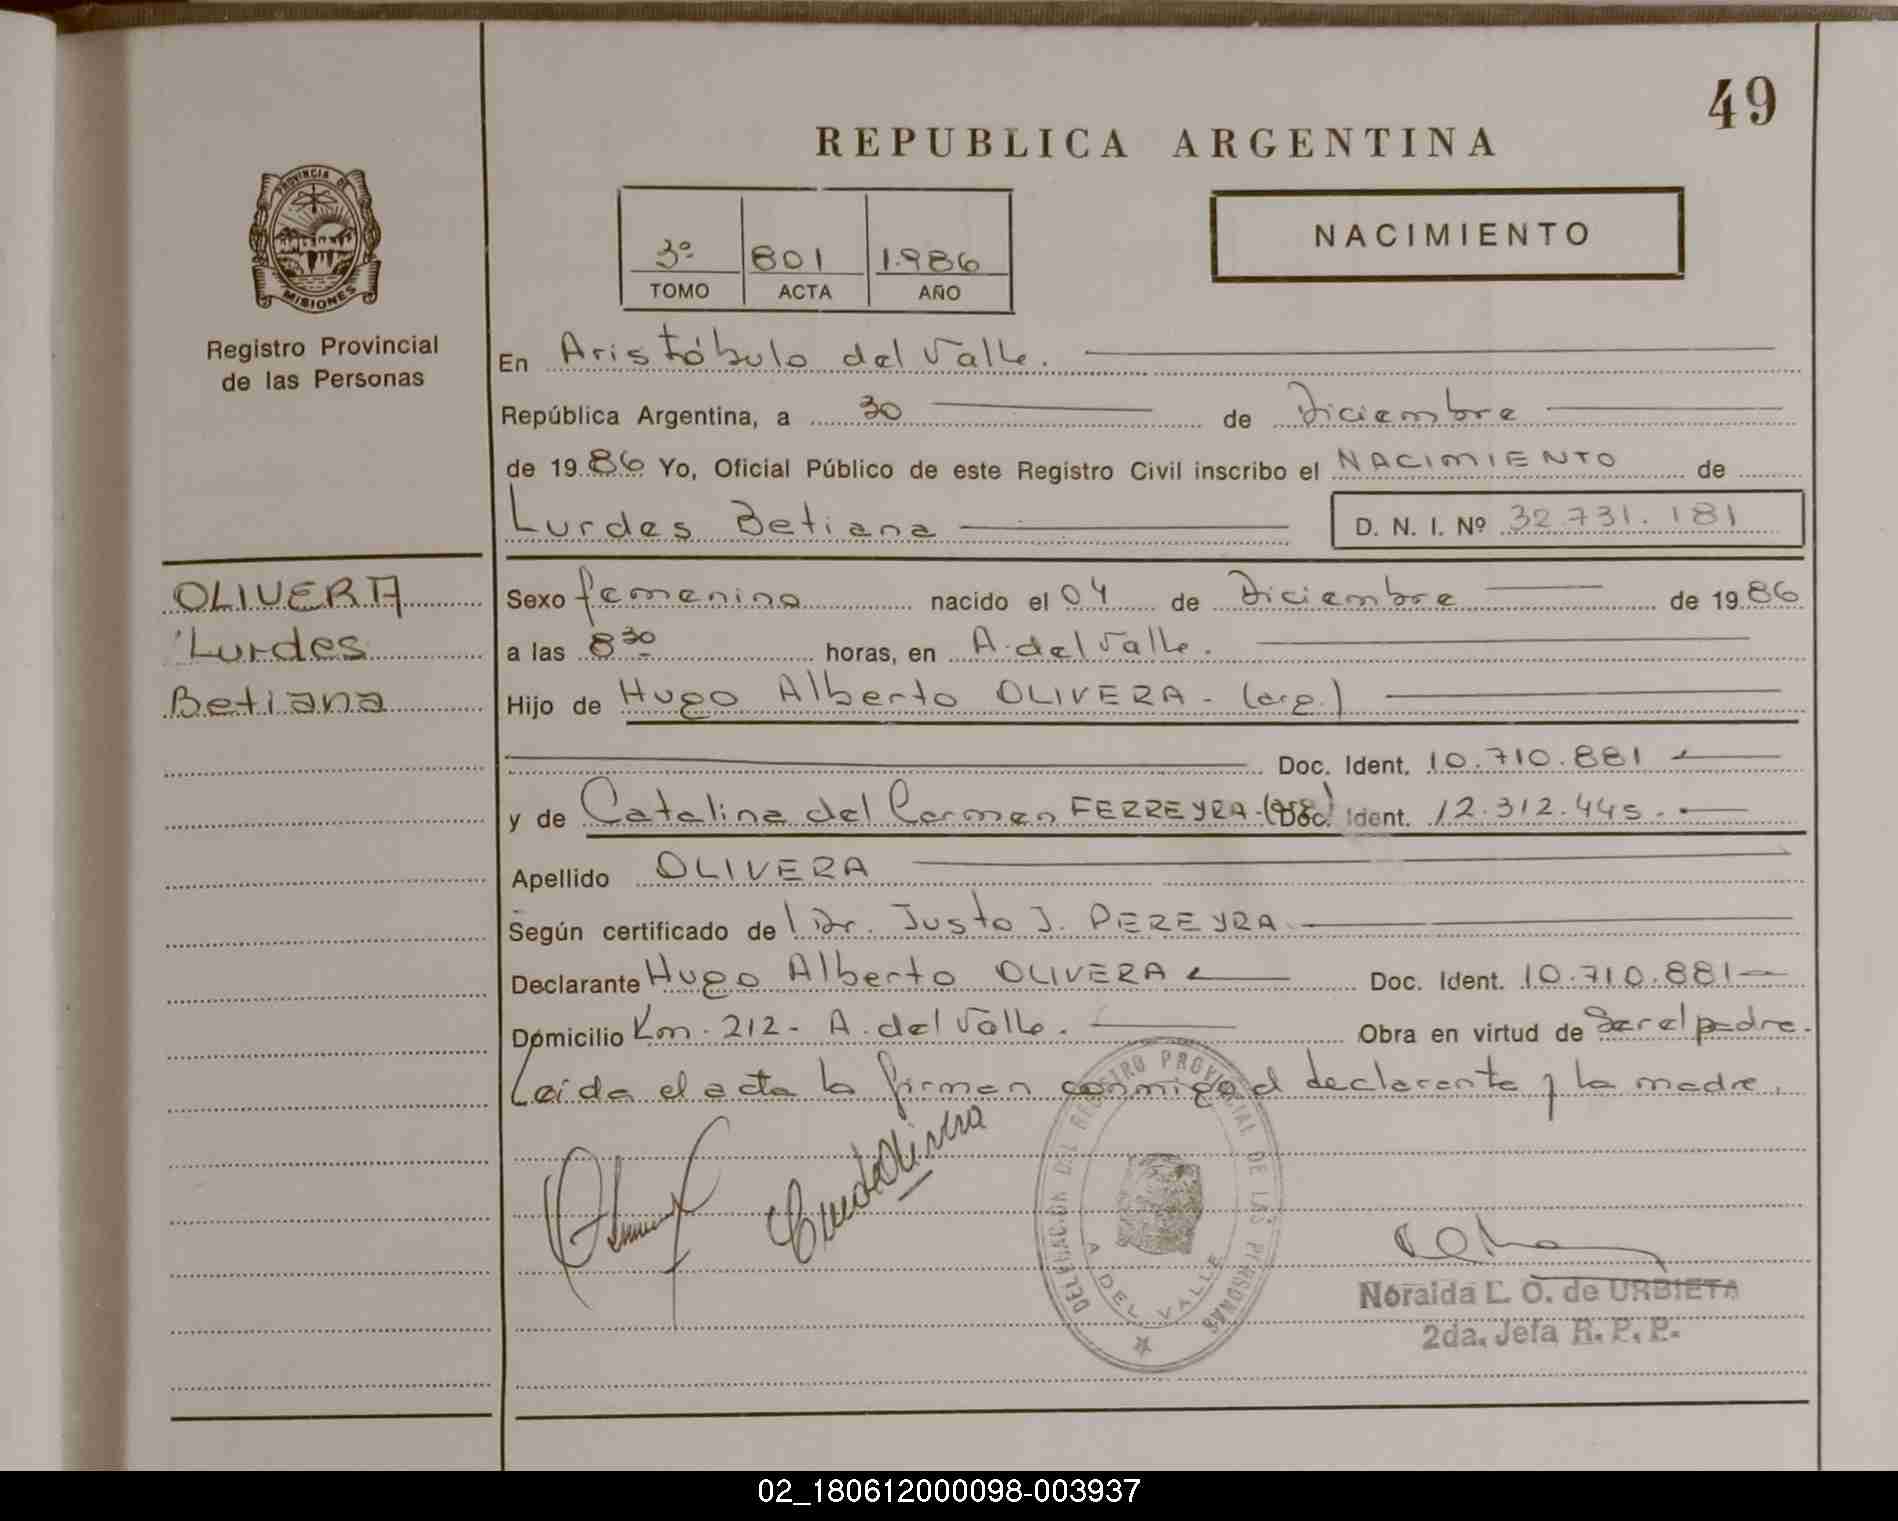 49
REPUBLICA ARGENTINA
PROVINCIA DE
MISIONES
Registro Provincial
de las Personas
3º 801 1.986
TOMO ACTA AÑO
NACIMIENTO
En Aristóbulo del Valle.
República Argentina, a 30 de Diciembre
de 1986 Yo, Oficial Público de este Registro Civil inscribo el NACIMIENTO de
Lurdes Betiana D. N. I. Nº 32.731.181
OLIVERA
Lurdes
Betiana
Sexo femenino nacido el 04 de Diciembre de 1986
a las 8 30 horas, en A. del Valle.
Hijo de Hugo Alberto OLIVERA - (arg.)
Doc. Ident. 10.710.881
y de Catalina del Carmen FERREYRA - (arg.) Doc. Ident. 12.312.445.
Apellido OLIVERA
Según certificado de Dr. Justo J. PEREYRA
Declarante Hugo Alberto OLIVERA Doc. Ident. 10.710.881
Domicilio Km. 212 - A. del Valle. Obra en virtud de Ser el padre.
Leída el acta la firman conmigo el declarante y la madre.
DELEGACION DEL REGISTRO PROVINCIAL DE LAS PERSONAS
A DEL VALLE
Noraida L. O. de URBIETA
2da. Jefa R. P. P.
02_180612000098-003937